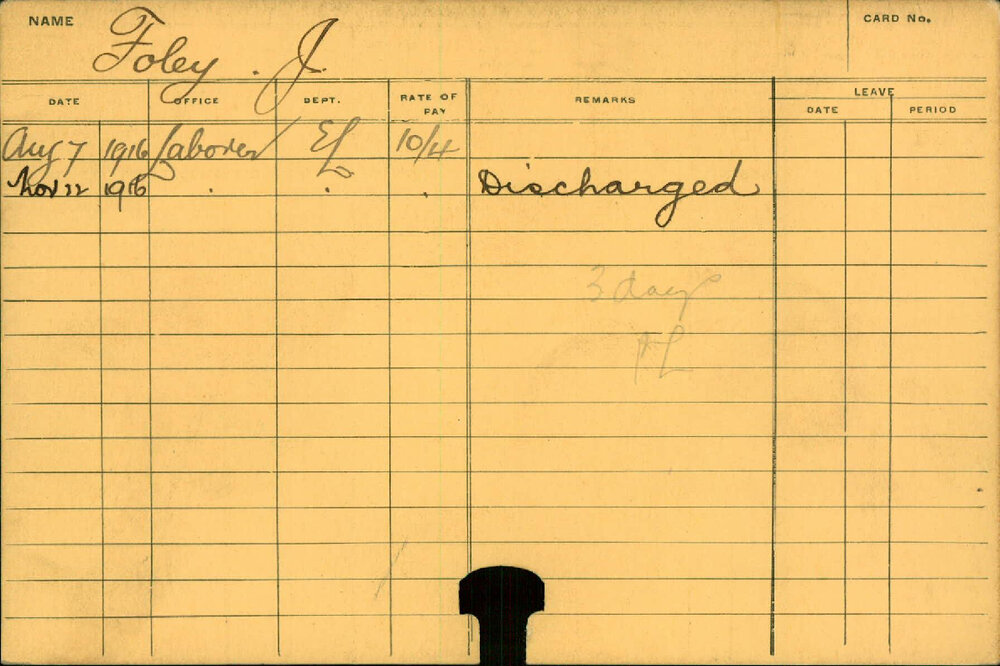 NAME Foley . J. CARD No.
DATE OFFICE DEPT. RATE OF PAY REMARKS LEAVE
DATE PERIOD
Aug 7 1916 Laborer EL 10/4
Nov 22 1916 . . . Discharged
3 days
AL